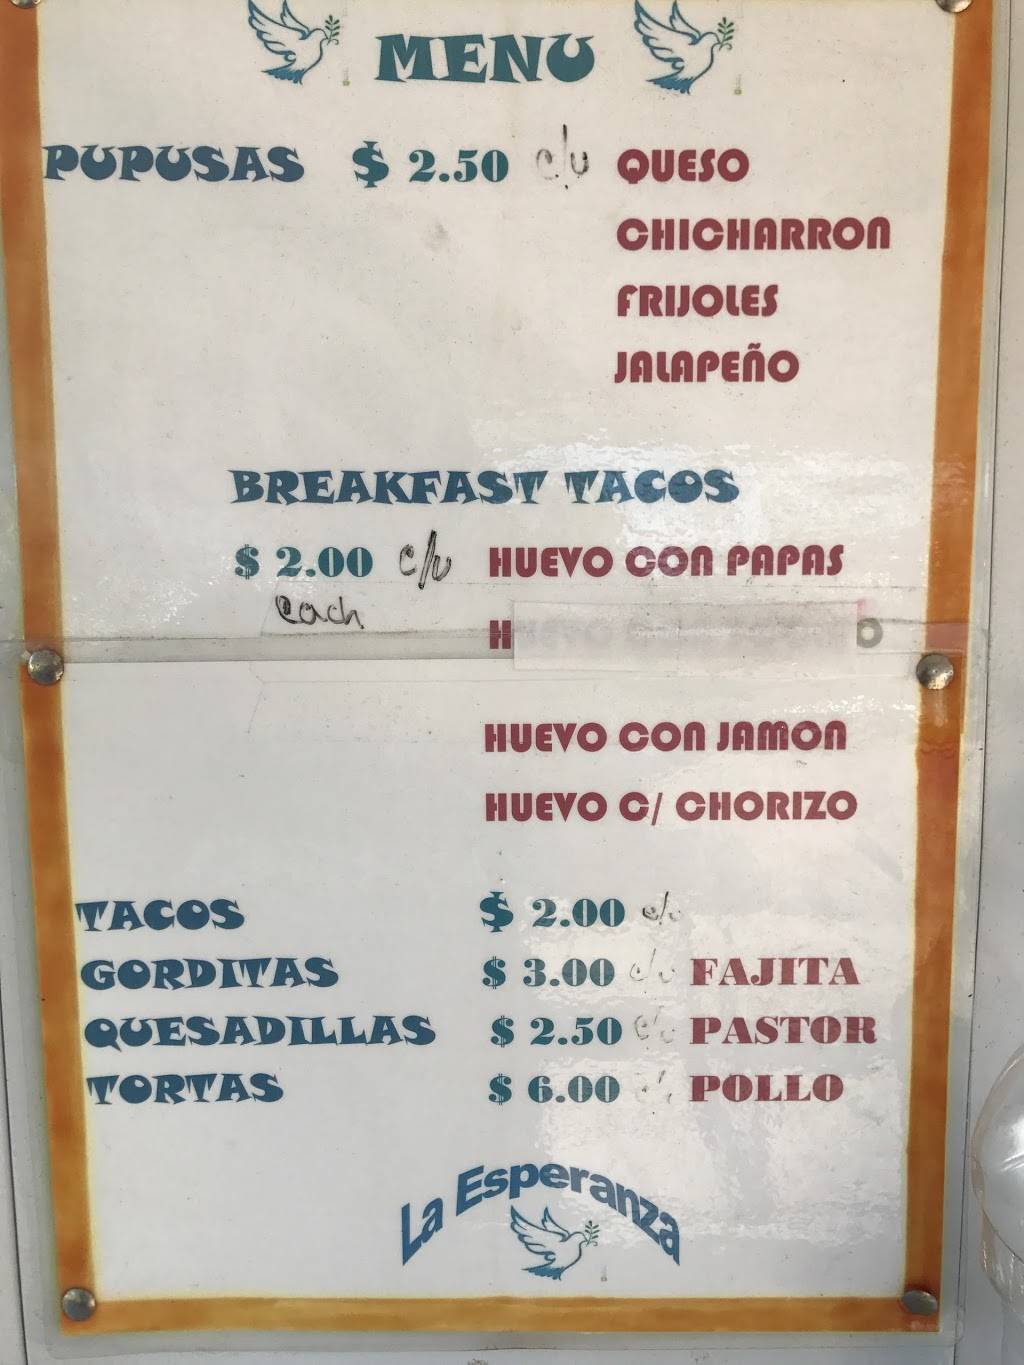 MENU
PUPUSAS $ 2.50 c/u QUESO
CHICHARRON
FRIJOLES
JALAPEÑO
BREAKFAST TACOS
$ 2.00 c/u HUEVO CON PAPAS
each
HUEVO CON JAMON
HUEVO C/ CHORIZO
TACOS $ 2.00 c/u
GORDITAS $ 3.00 c/u FAJITA
QUESADILLAS $ 2.50 c/u PASTOR
TORTAS $ 6.00 POLLO
La Esperanza